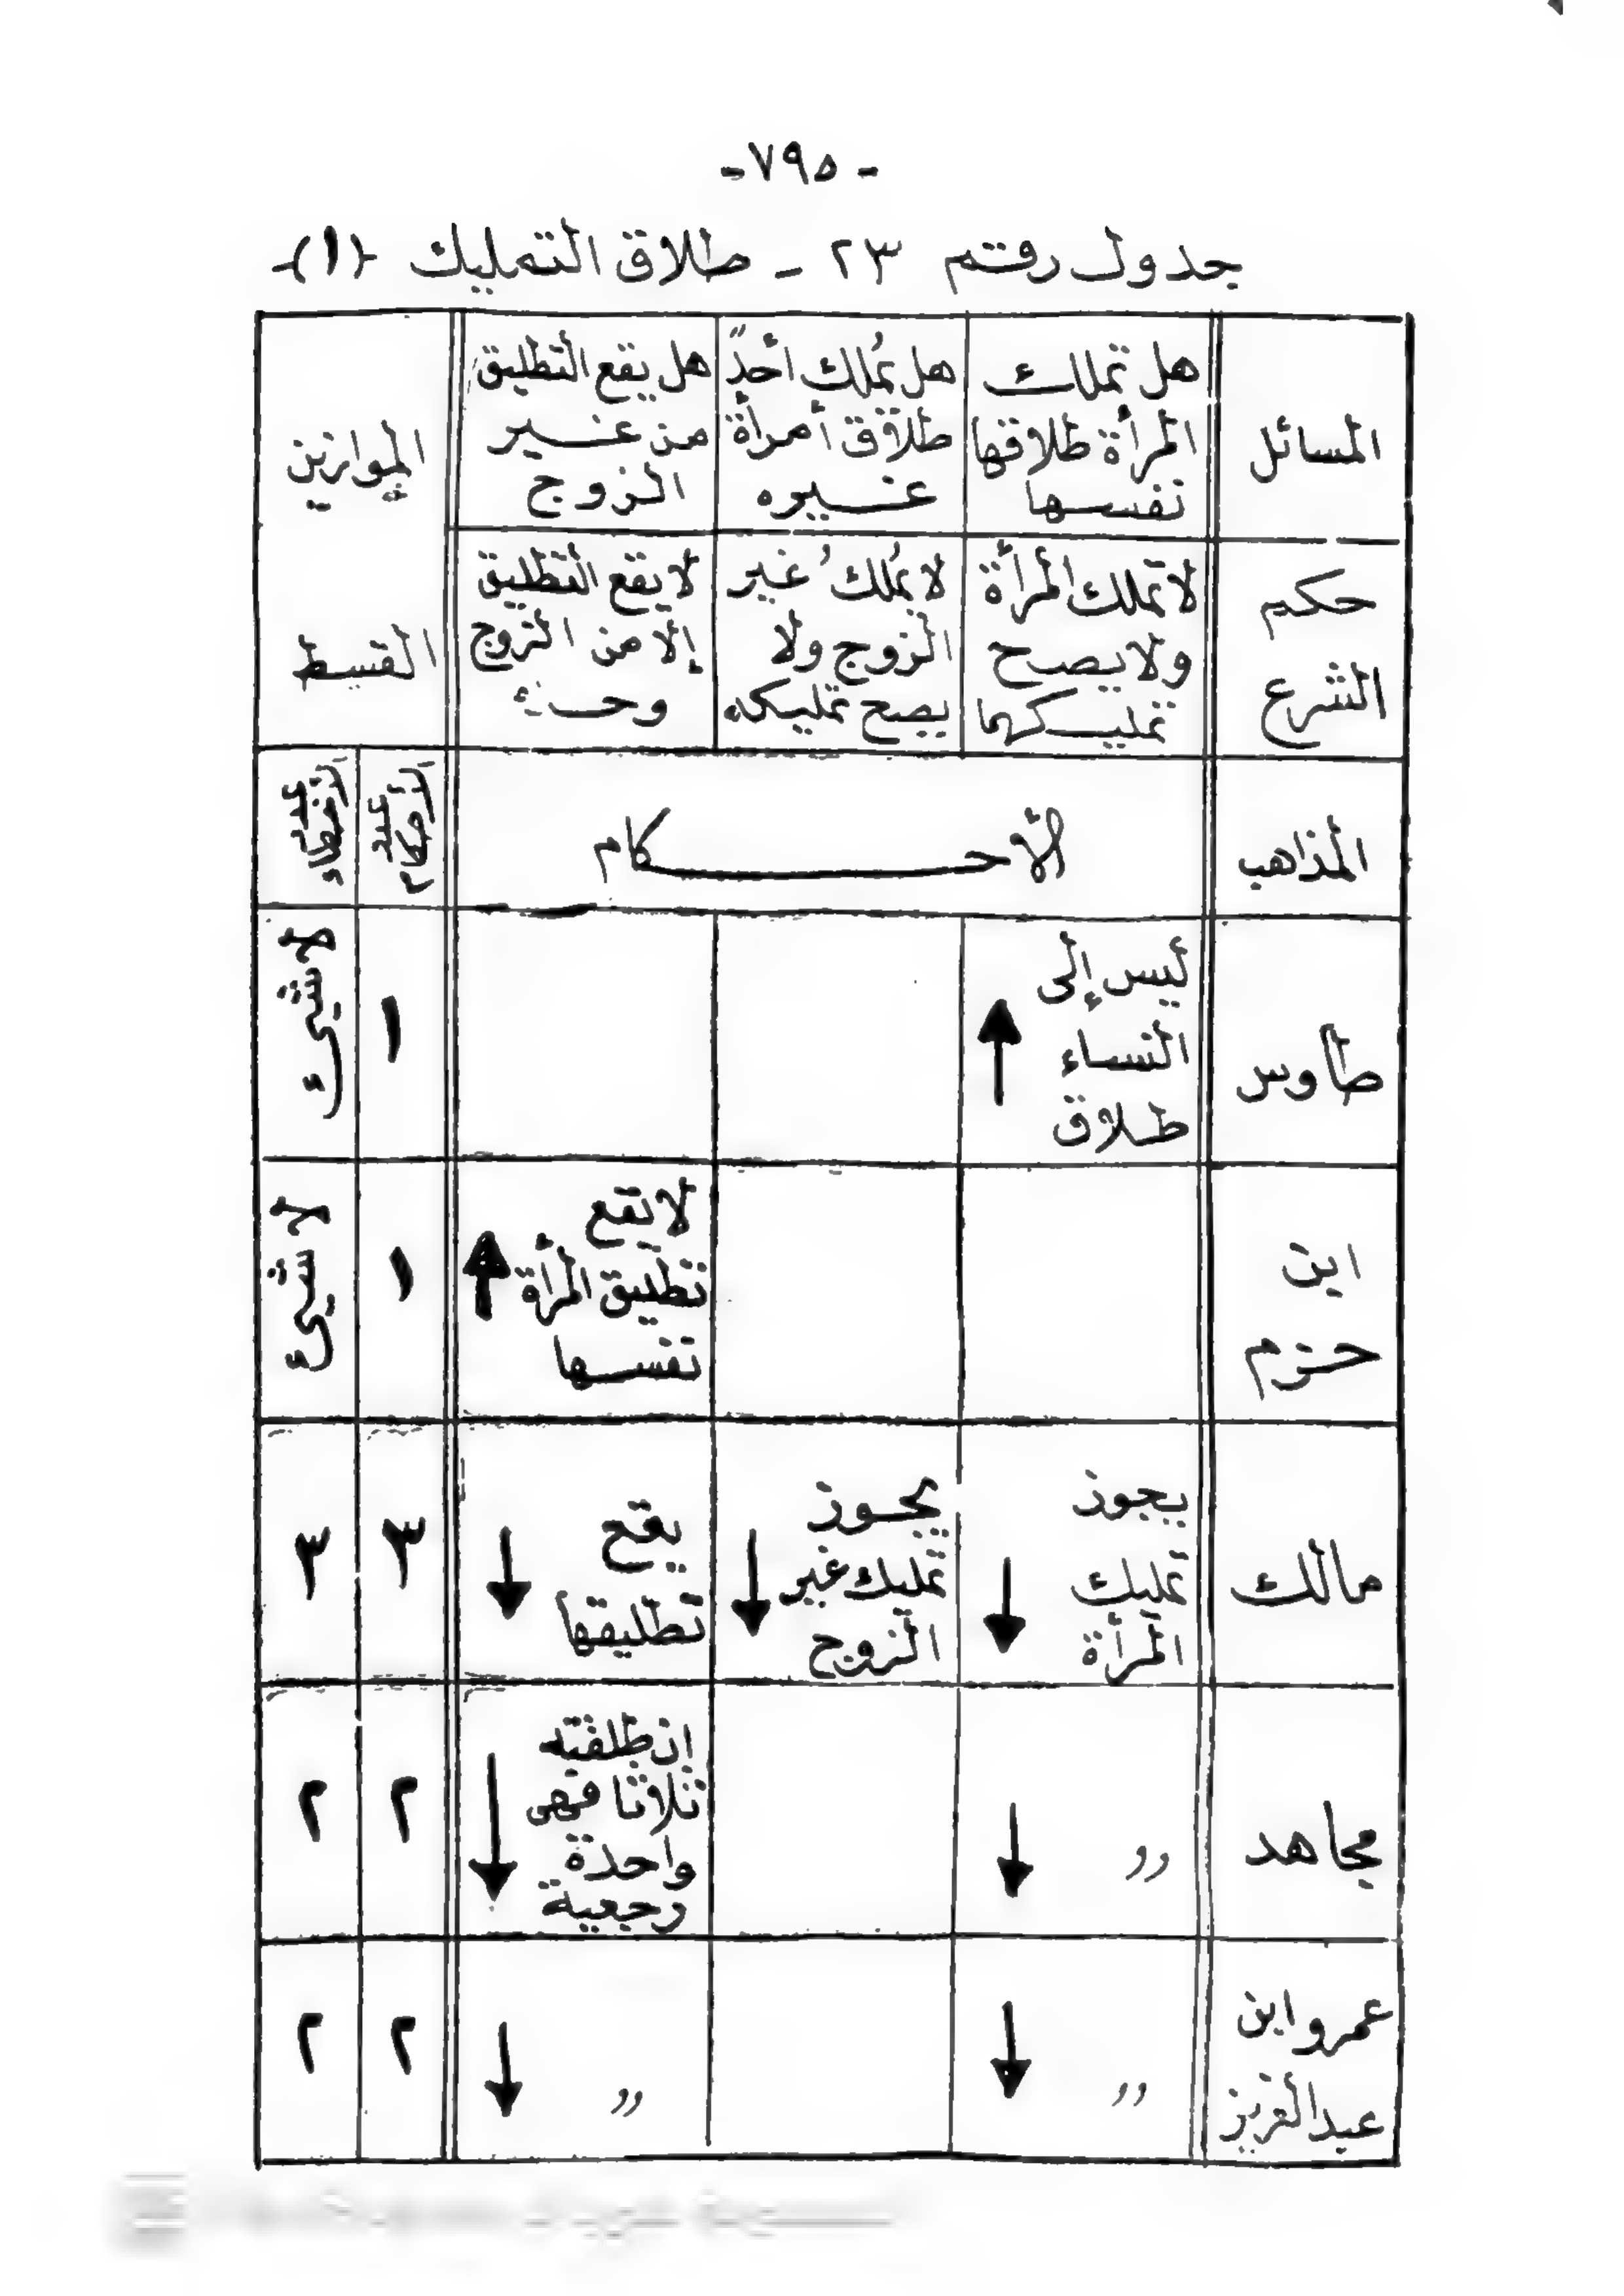 -٧٩٥-
جدول رقم ٢٣ - طلاق التمليك -(١)-
المسائل
هل تملك
المرأة طلاقها
نفسها
هل يُملك أحدٌ
طلاق أمرأة
غيره
هل يقع التطليق
من غير
الزوج
الموازين
القسط
حكم
الشرع
لا تملك المرأة
ولا يصح
تمليكها
لا يُملك غير
الزوج ولا
يصح تمليكه
لا يقع التطليق
إلا من الزوج
المذاهب
الأحكام
عدد
الأحكام
عدد
الأخطاء
طاوس
ليس إلى
النساء
طلاق
١
لا شيئ
ابن
حزم
لا يقع
تطليق المرأة
نفسها
١
لا شيئ
مالك
يجوز
تمليك
المرأة
يجوز
تمليك غير
الزوج
يقع
تطليقها
٣
٣
مجاهد
,,
ان طلقته
ثلاثا فهى
واحدة
رجعية
٢
٢
عمرو ابن
عبد العزيز
,,
,,
٢
٢